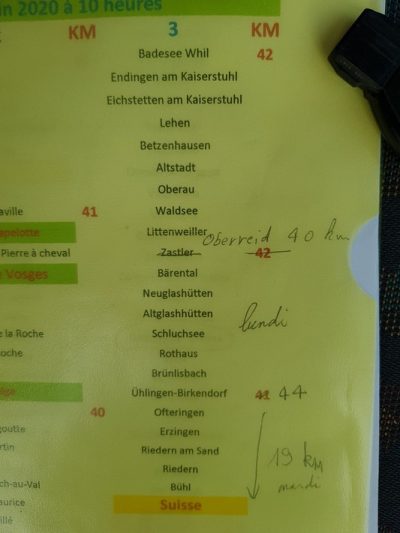 in 2020 à 10 heures
KM 3 KM
Badesee Whil 42
Endingen am Kaiserstuhl
Eichstetten am Kaiserstuhl
Lehen
Betzenhausen
Altstadt
Oberau
aville 41 Waldsee
apelotte Littenweiller Oberreid 40 km
Pierre à cheval Zastler 42
Vosges Bärental
Neuglashütten
Altglashhütten lundi
e la Roche Schluchsee
oche Rothaus
Brünlisbach
Ühlingen-Birkendorf 41 44
40 Ofteringen
goutte Erzingen
rtin Riedern am Sand 19 KM
Riedern mardi
ch-au-Val Bühl
aurice Suisse
illé